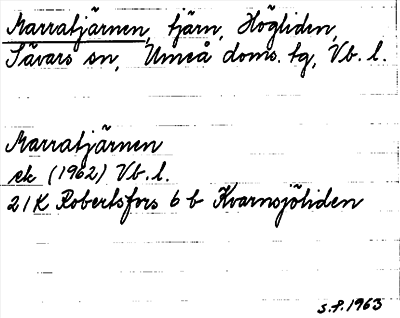 Marratjärnen, tjärn, Högliden,
Sävars sn, Umeå doms. tg, Vb. l.
Marratjärnen
ek (1962) Vb. l.
21K Robertsfors 6 b Kvarnsjöliden
S.F. 1963